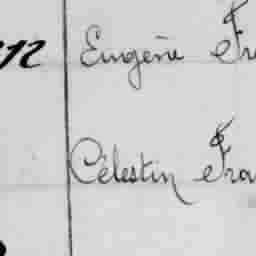 12 Eugène Fr
Célestin Fra